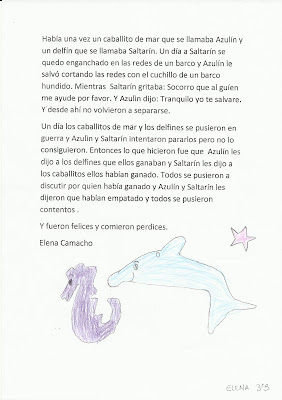 Había una vez un caballito de mar que se llamaba Azulín y
un delfín que se llamaba Saltarín. Un día a Saltarín se
quedo enganchado en las redes de un barco y Azulín le
salvó cortando las redes con el cuchillo de un barco
hundido. Mientras Saltarín gritaba: Socorro que al guien
me ayude por favor. Y Azulin dijo: Tranquilo yo te salvare.
Y desde ahí no volvieron a separarse.
Un día los caballitos de mar y los delfines se pusieron en
guerra y Azulin y Saltarín intentaron pararlos pero no lo
consiguieron. Entonces lo que hicieron fue que Azulín les
dijo a los delfines que ellos ganaban y Saltarín les dijo a
los caballitos ellos habían ganado. Todos se pusieron a
discutir por quien había ganado y Azulín y Saltarín les
dijeron que habían empatado y todos se pusieron
contentos .
Y fueron felices y comieron perdices.
Elena Camacho
ELENA 3º3